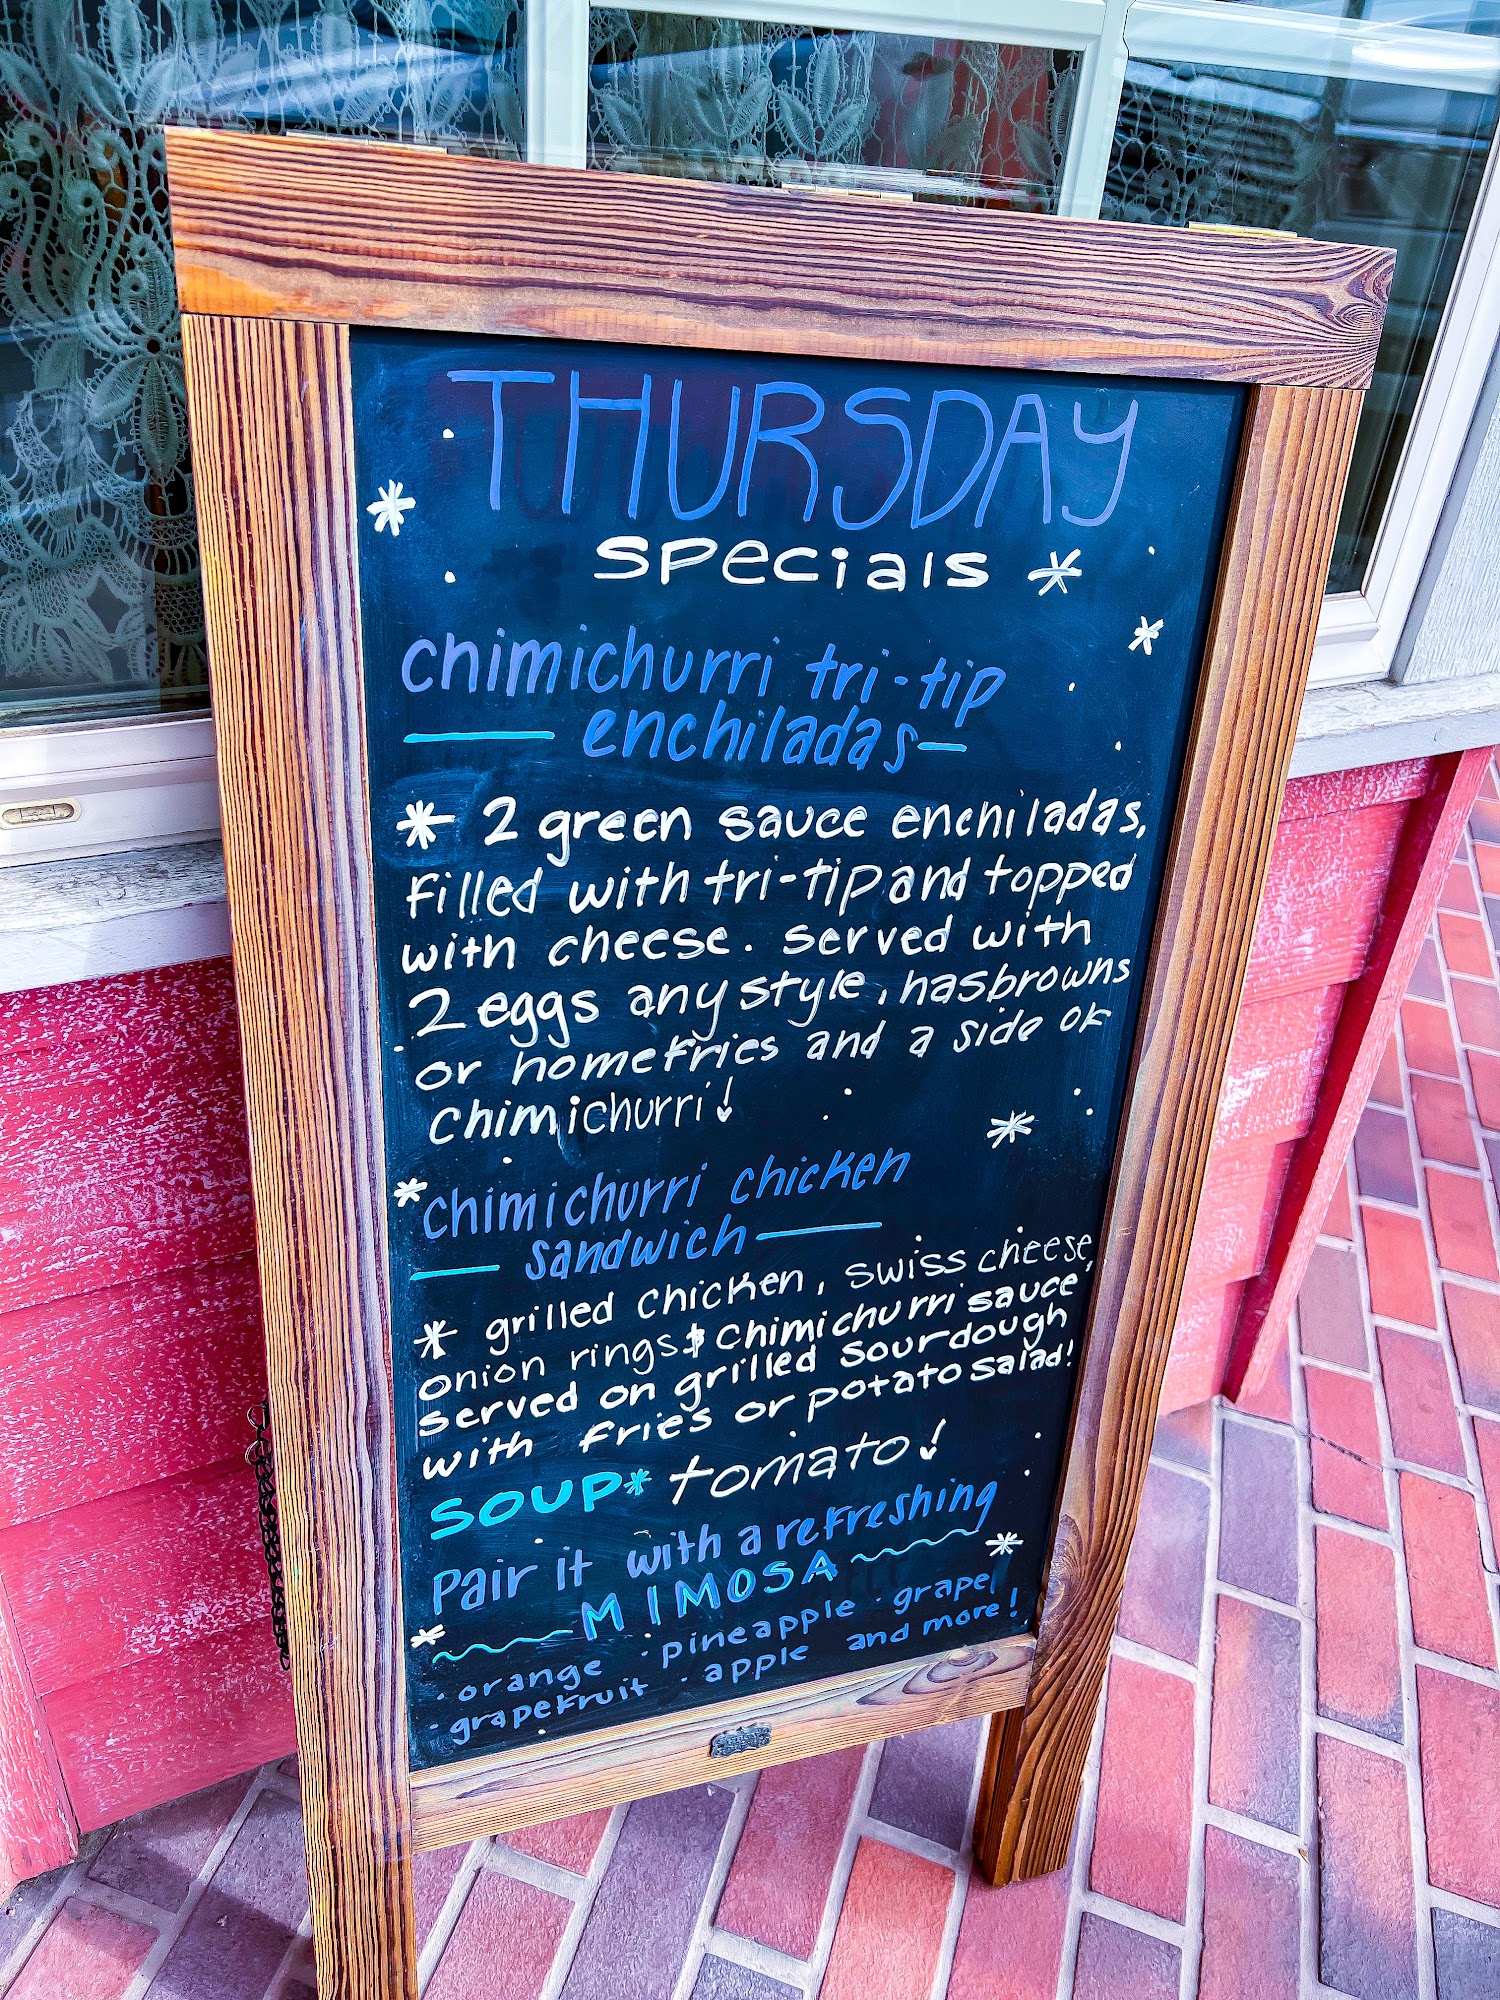 THURSDAY
specials
chimichurri tri-tip
enchiladas
2 green sauce enchiladas,
filled with tri-tip and topped
with cheese. served with
2 eggs any style, hasbrowns
or homefries and a side of
chimichurri!
chimichurri chicken
sandwich
grilled chicken, swiss cheese,
onion rings & chimichurri sauce
served on grilled sourdough
with fries or potato salad!
SOUP* tomato!
Pair it with a refreshing
MIMOSA
· orange · pineapple · grape
· grapefruit · apple and more!